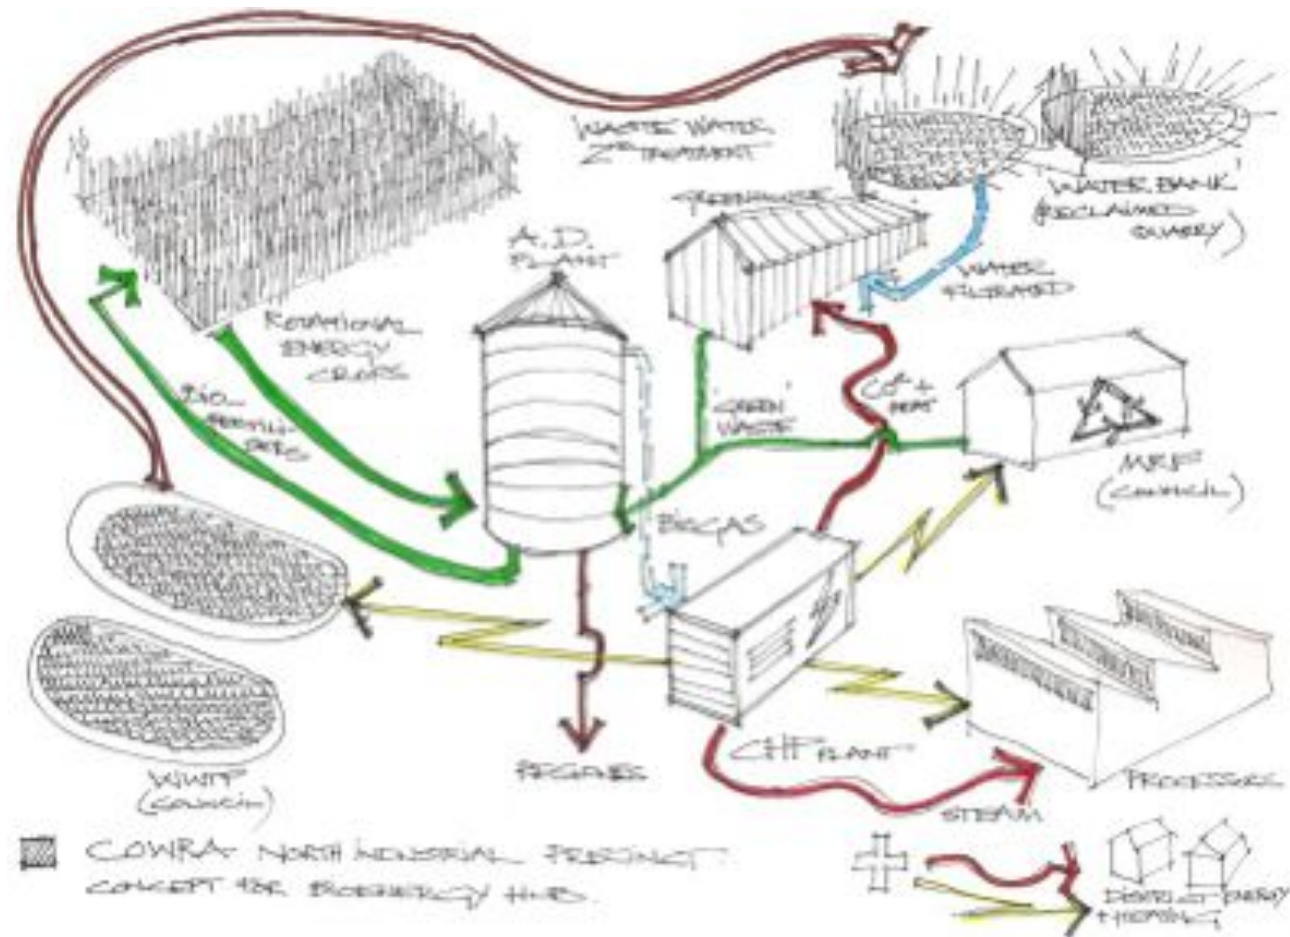 WASTE WATER
2ND TREATMENT
GREENHOUSE
WATER BANK
(RECLAIMED
QUARRY)
A.D.
PLANT
WATER
FILTRATED
ROTATIONAL
ENERGY
CROPS
BIO-
FERTILI-
SERS
'GREEN
WASTE'
CO2 +
HEAT
MRF
(COUNCIL)
BIOGAS
CHP PLANT
PROCESSORS
WWTP
(COUNCIL)
STEAM
COWRA NORTH INDUSTRIAL PRECINCT
CONCEPT FOR BIOENERGY HUB.
DISTRICT ENERGY
+ HEATING